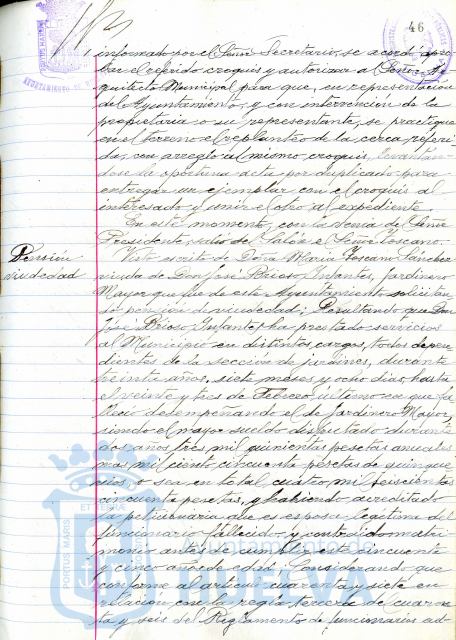 46
informado por el Señor Secretario, se acordó apro-
bar el referido croquis y autorizar al Señor Ar-
quitecto Municipal para que, en representación
del Ayuntamiento, y con intervención de la
propietaria o su representante, se practique
en el terreno el replanteo de la cerca referi-
da, con arreglo al mismo croquis, levantan-
dose la oportuna acta por duplicado para
entregar un ejemplar con el croquis al
interesado y unir el otro al expediente.
En este momento, con la venia del Señor
Presidente, salió del Salón el Señor Toscano.
Pensión
viudedad
Visto escrito de Doña María Toscano Sánchez
viuda de Don José Brioso Infantes, Jardinero
Mayor que fue de este Ayuntamiento solicitan
do pensión de viudedad; Resultando que Don
José Brioso Infante, ha prestado servicios
al Municipio en distintos cargos, todos depen-
dientes de la sección de jardines, durante
treinta años, siete meses y ocho dias, hasta
el veinte y tres de Febrero último en que fa-
lleció desempeñando el de Jardinero Mayor,
siendo el mayor sueldo disfrutado durante
dos años tres mil quinientas pesetas anuales
mas mil ciento cincuenta pesetas de quinque
nios, o sea en total cuatro mil seiscientas
cincuenta pesetas, y habiendo acreditado
la peticionaria que es esposa legítima del
funcionario fallecido y contraido matri
monio antes de cumplir este cincuenta
y cinco años de edad. Considerando que
conforme al artículo cuarenta y siete en
relación con la regla tercera de cuaren
ta y seis del Reglamento de funcionarios ad-
PORTUS MARIS
ET TERRÆ
Ayuntamiento de
HUELVA